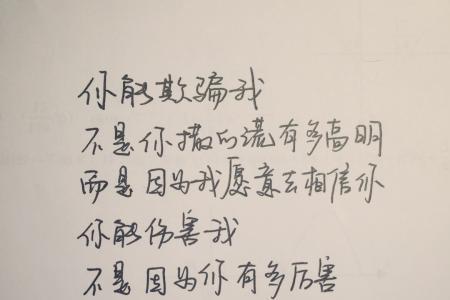 你能欺骗我
不是你撒的谎有多高明
而是因为我愿意去相信你
你能伤害我
不是因为你有多厉害